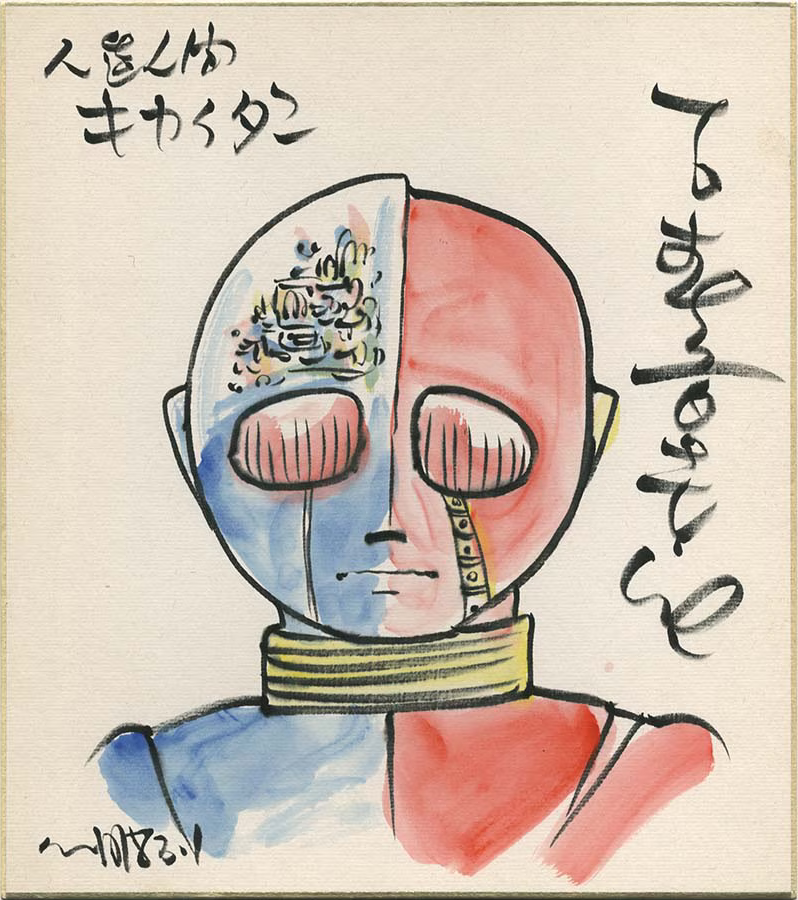 人造人間
キカイダー
石森章太郎